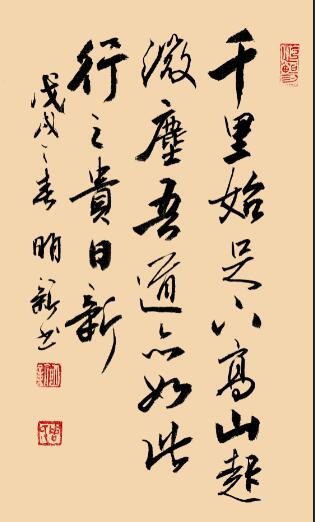 千里始足下高山起
微塵吾道亦如此
行之貴日新
戊戌之春明书